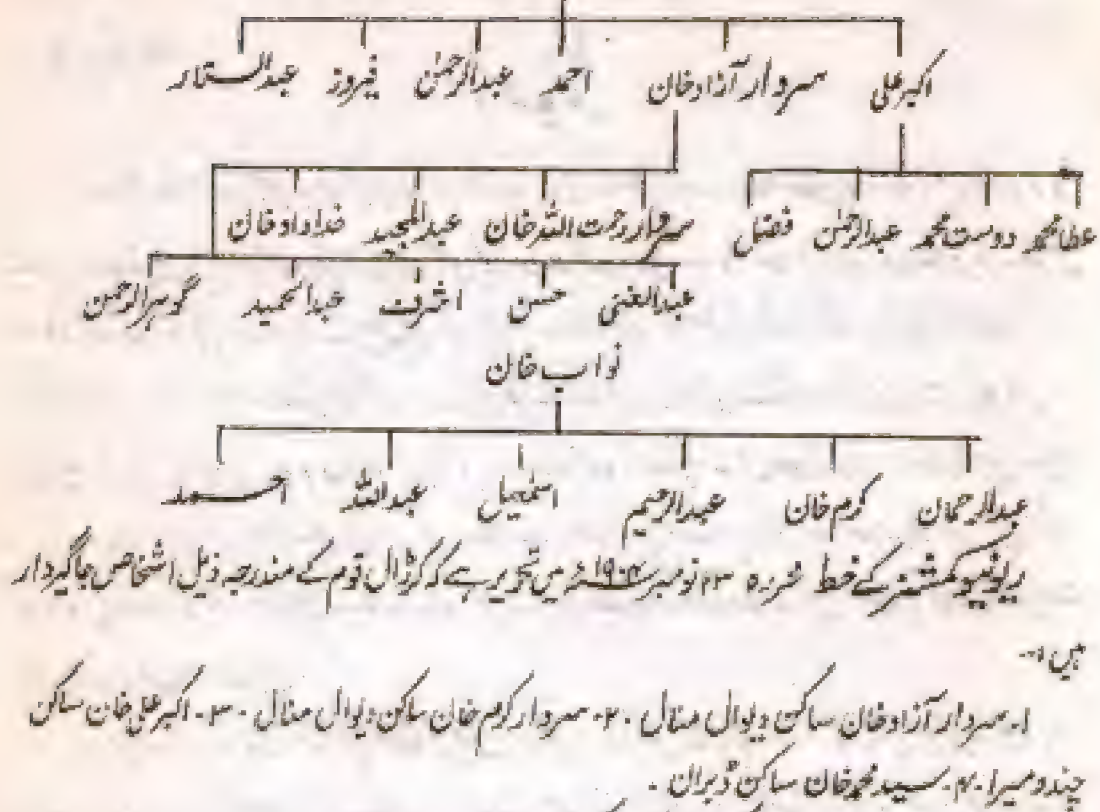 اکبر علی سردار آزاد خان احمد عبدالرحمٰن فیروز عبدالستار
سردار رحمت اللہ خان عبدالمجید خداداد خان
عطا محمد دوست محمد عبدالرحمٰن فضل
عبدالغنی حسن اشرف عبدالحمید گوہر الرحمن
نواب خان
عبدالرحمان کرم خان عبدالرحیم اسمٰعیل عبداللہ احمد
ریونیو کمشنر کے خط محررہ ۲۳ نومبر میں تحریر ہے کہ کرڑال قوم کے مندرجہ ذیل اشخاص جاگیردار
ہیں :-
۱۔ سردار آزاد خان ساکن دیوال منال ۔ ۲۔ سردار کرم خان ساکن دیوال منال ۔ ۳۔ اکبر علی خان ساکن
چندو میرا ۔ ۴۔ سید محمد خان ساکن ڈبران ۔